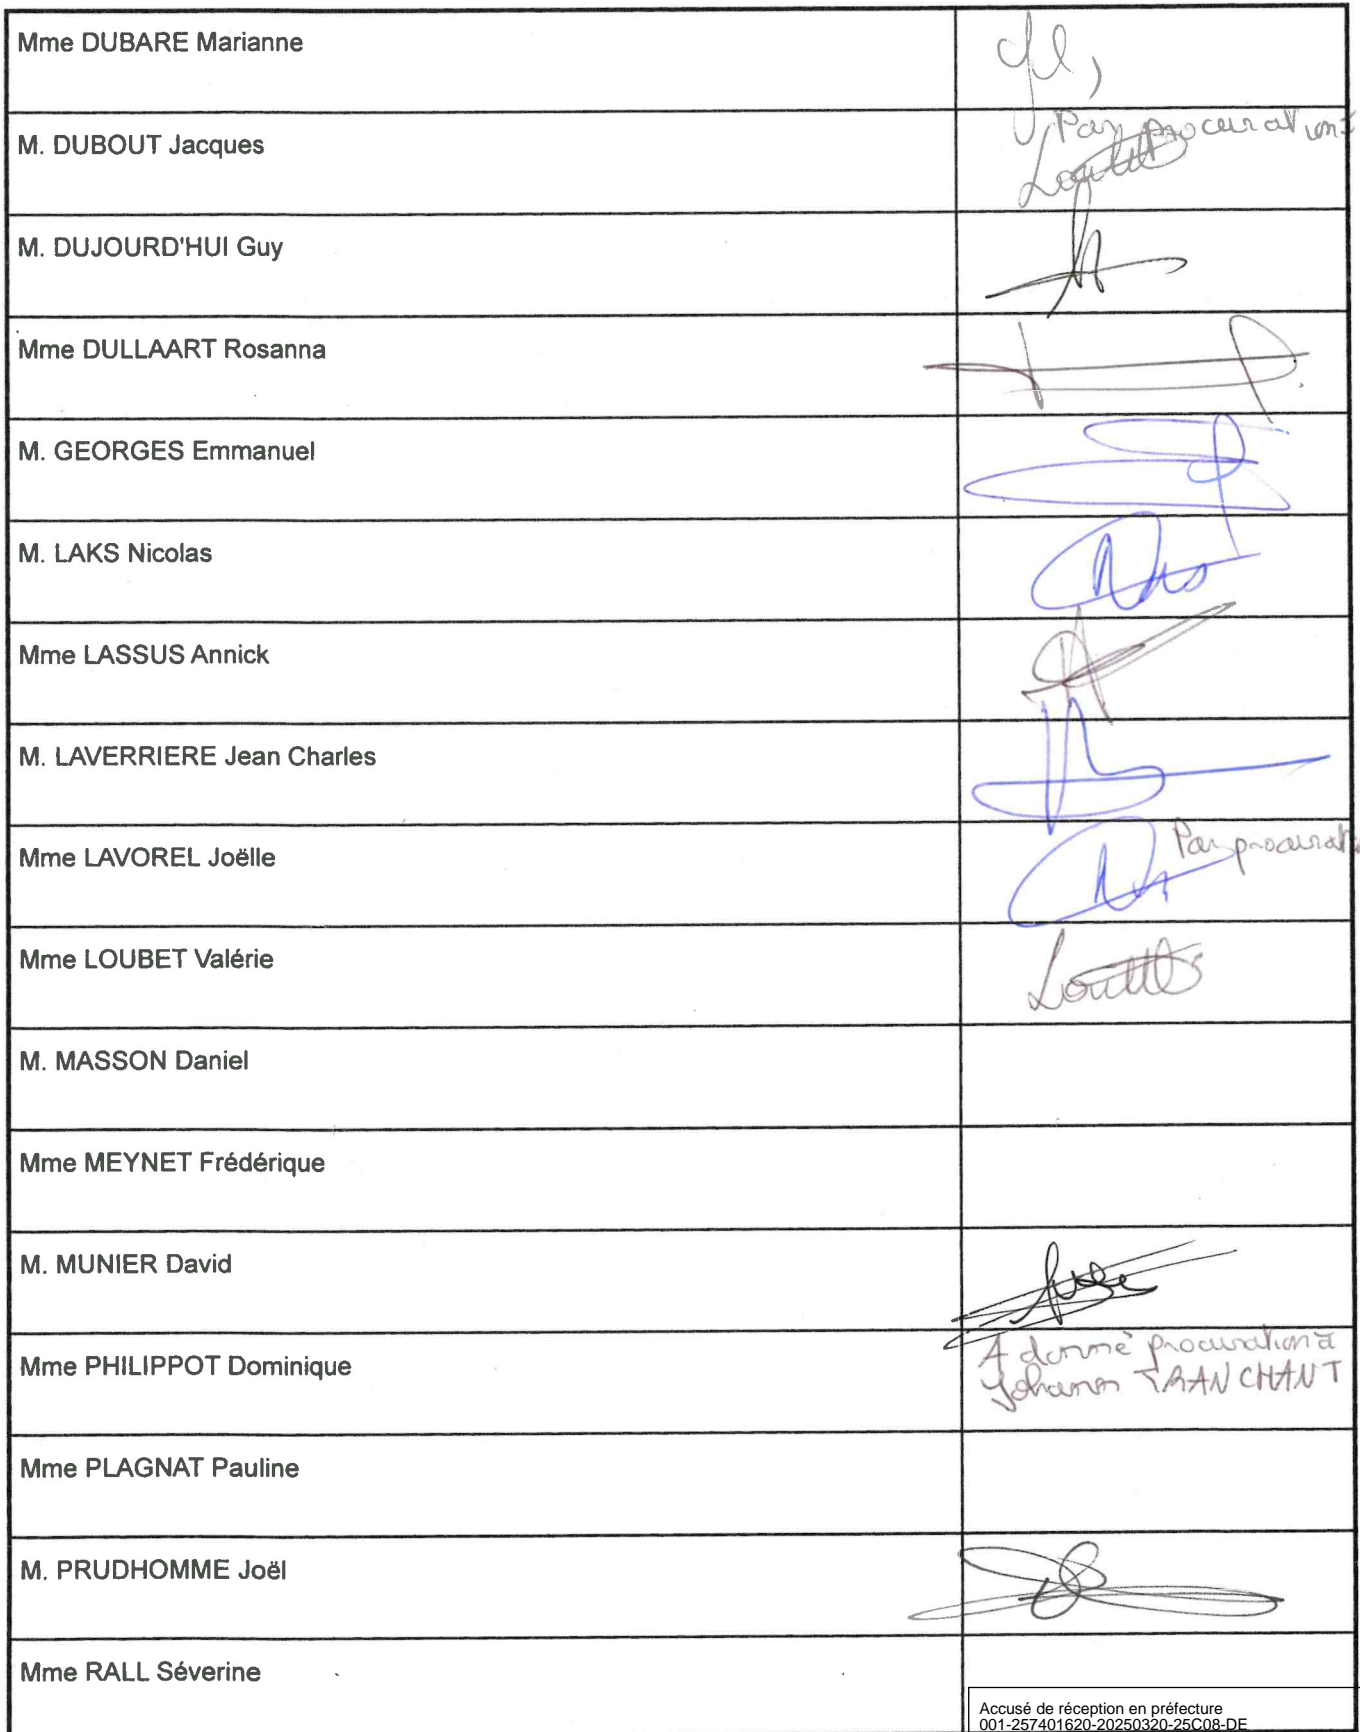 Mme DUBARE Marianne
M. DUBOUT Jacques
Par procuration
M. DUJOURD'HUI Guy
Mme DULLAART Rosanna
M. GEORGES Emmanuel
M. LAKS Nicolas
Mme LASSUS Annick
M. LAVERRIERE Jean Charles
Mme LAVOREL Joëlle
Par procurat
Mme LOUBET Valérie
M. MASSON Daniel
Mme MEYNET Frédérique
M. MUNIER David
Mme PHILIPPOT Dominique
A donné procuration à
Johann TRANCHANT
Mme PLAGNAT Pauline
M. PRUDHOMME Joël
Mme RALL Séverine
Accusé de réception en préfecture
001-257401620-20250320-25C08-DE